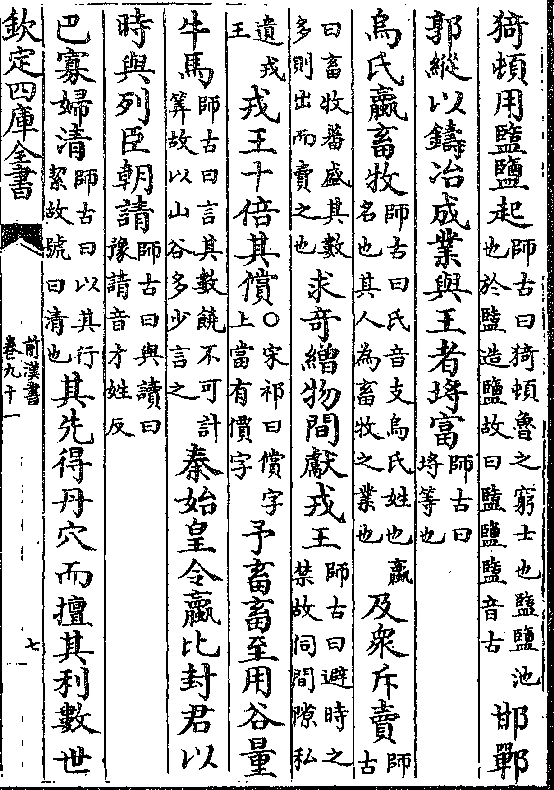 猗頓用盬鹽起師古曰猗頓魯之窮士也盬鹽池也於盬造鹽故曰盬鹽盬音古邯鄲
郭縱以鑄冶成業與王者埒富師古曰埒等也
烏氏臝畜牧師古曰氏音支烏氏姓也臝名也其人為畜牧之業也及衆斥賣師古
曰畜牧蕃盛其數多則出而賣之也求奇繒物間獻戎王師古曰避時之禁故伺間隙私
遺戎王戎王十倍其償○宋祁曰償字上當有價字予畜畜至用谷量
牛馬師古曰言其數饒不可計算故以山谷多少言之秦始皇令臝比封君以
時與列臣朝請師古曰與讀曰豫請音才姓反
巴寡婦清師古曰以其行絜故號曰清也其先得丹穴而擅其利數世
欽定四庫全書
前漢書
卷九十一
七